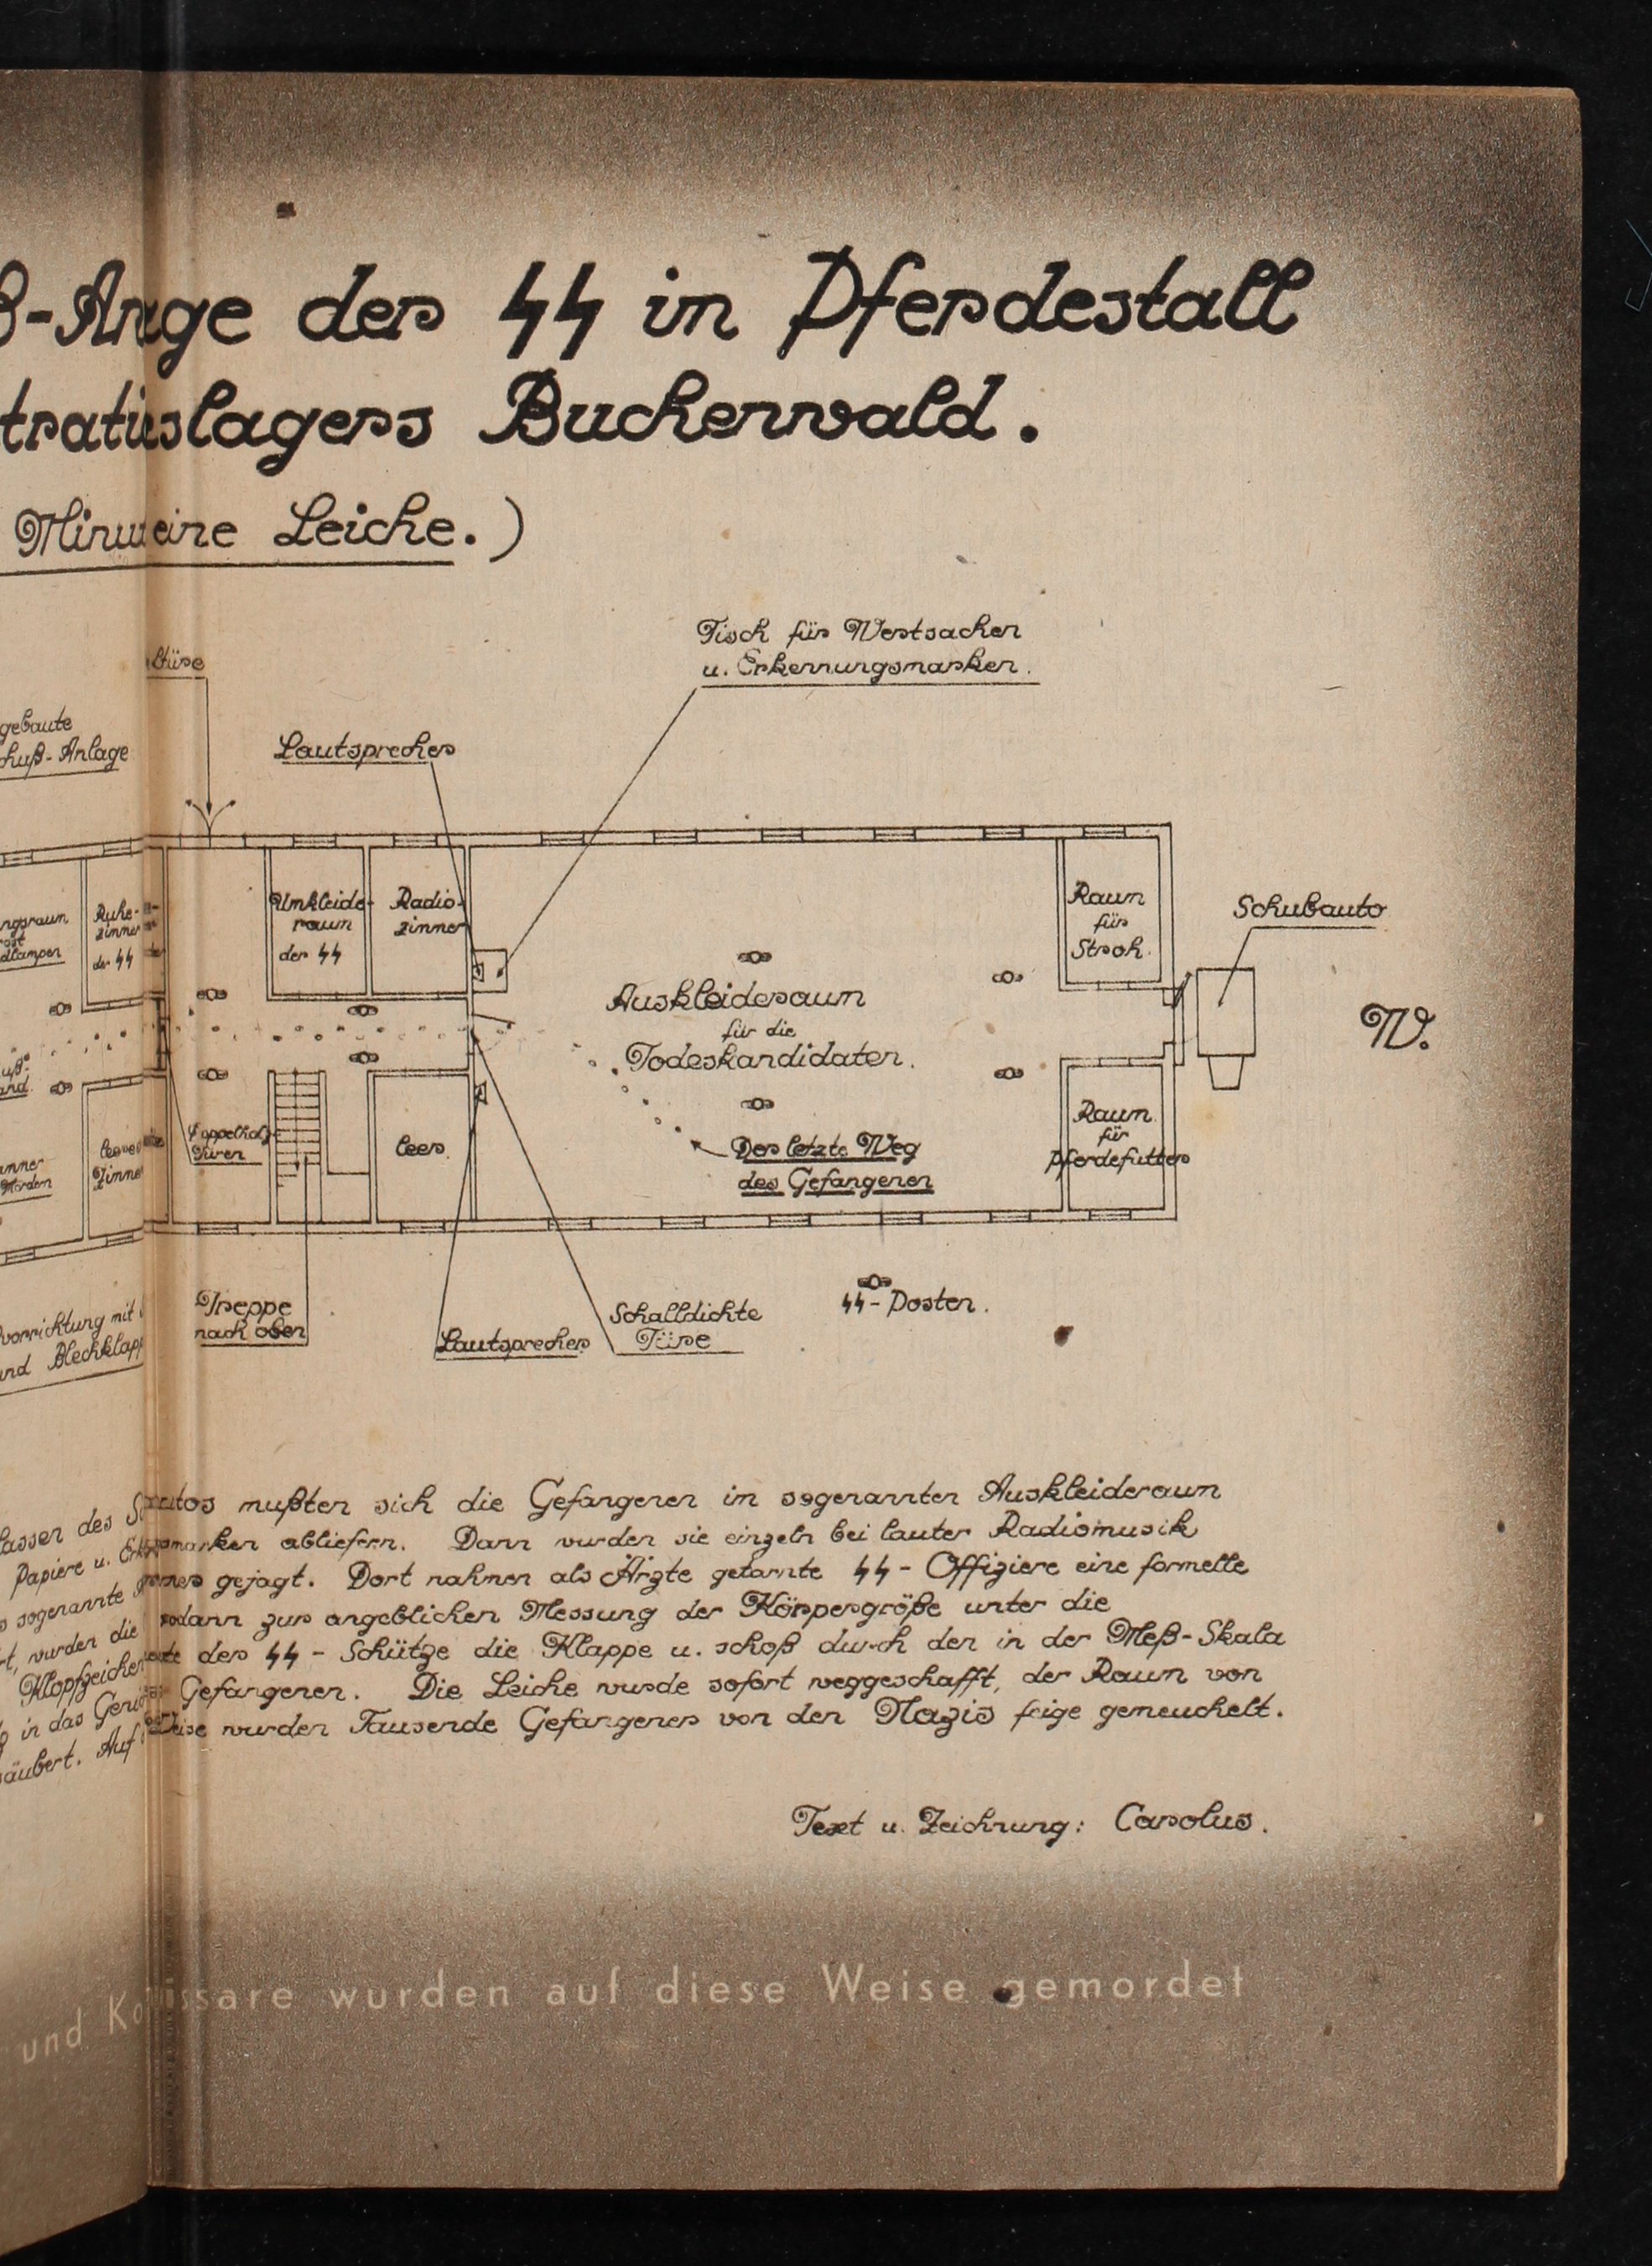 der SS in Pferdestall
lagers Buchenwald.
eine Leiche.)
Tisch für Wertsachen
u. Erkennungsmarken.
türe
gebaute
Lautsprecher
huß-Anlage
Umkleide-
raum
der SS
Radio-
zimmer
Ruhe-
zimmer
der SS
Raum
für
Stroh.
Schubauto
W.
Auskleideraum
für die
Todeskandidaten.
Raum
für
Pferdefutter
Türen
leer
Zimmer
Der letzte Weg
des Gefangenen
Treppe
nach oben
Lautsprecher
Schalldichte
Türe
SS-Posten.
vorrichtung mit
und Blechklapp
lassen des mußten sich die Gefangenen im sogenannten Auskleideraum
Papiere u. marken abliefern. Dann wurden sie einzeln bei lauter Radiomusik
sogenannte gejagt. Dort nahmen als Ärzte getarnte SS-Offiziere eine formelle
wurden die sodann zur angeblichen Messung der Körpergröße unter die
Klopfzeichen der SS-Schütze die Klappe u. schoß durch den in der Meß-Skala
in das Gefangenen. Die Leiche wurde sofort weggeschafft, der Raum von
säubert. Auf Weise wurden Tausende Gefangener von den Nazis feige gemeuchelt.
Text u. Zeichnung: Carolus.
und wurden auf diese Weise gemordet